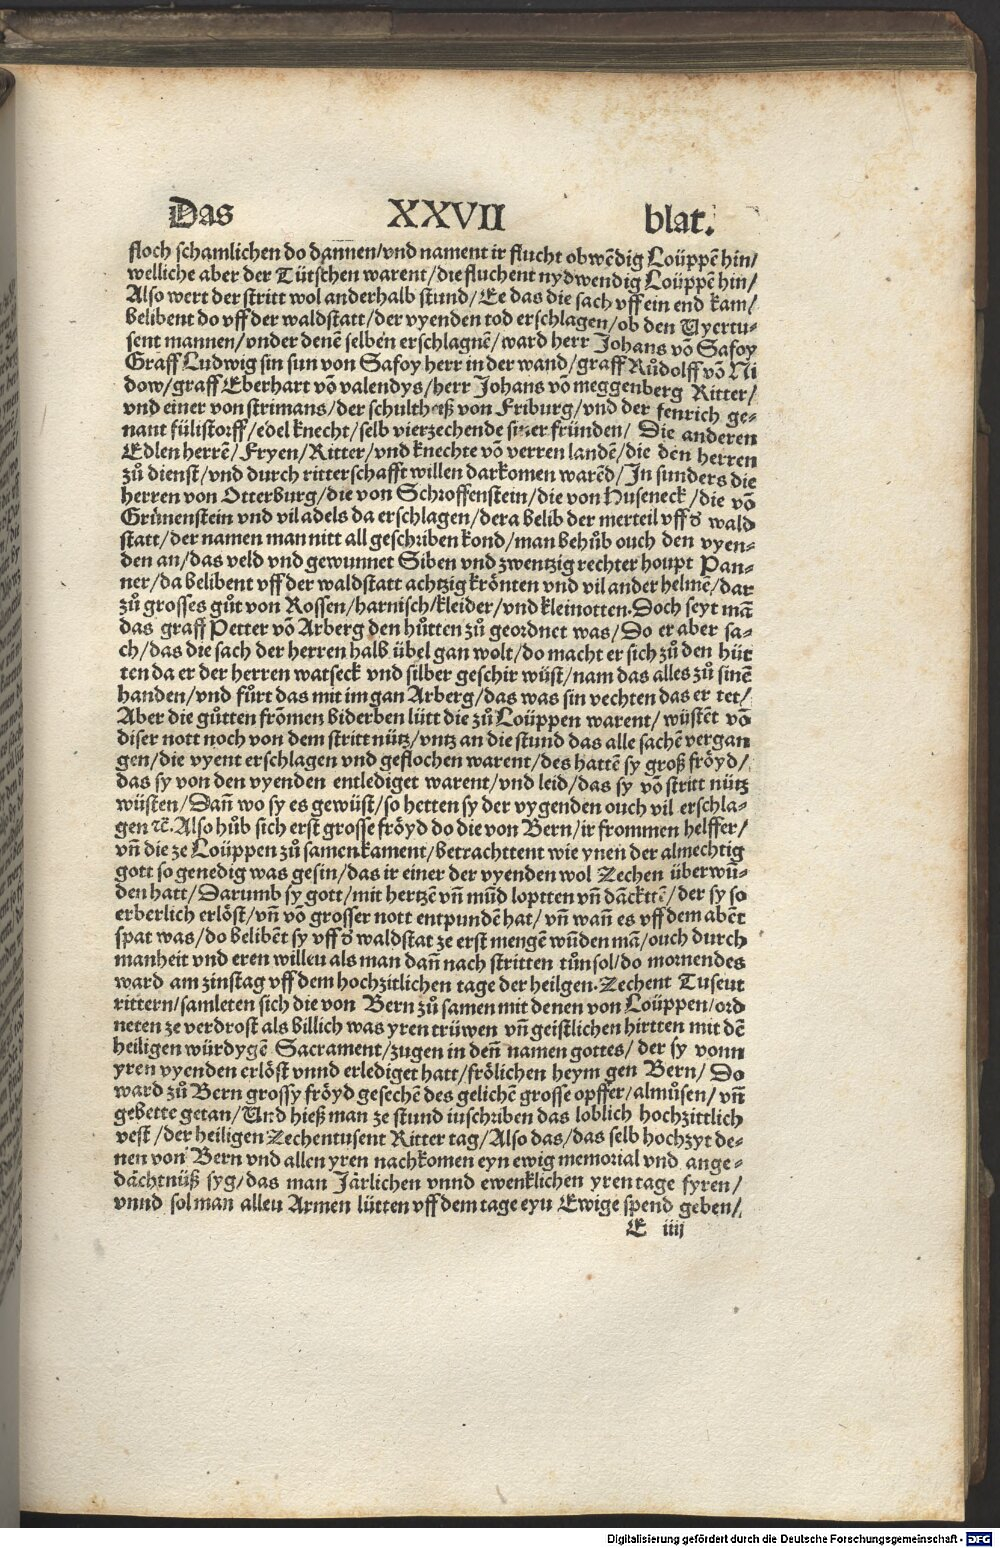 Das XXVII blat.
floch schamlichen do dannen/vnd nament ir flucht obwēdig Loüppē hin/
welliche aber der Tütschen warent/die fluchent nydwendig Loüppē hin/
Also wert der stritt wol anderhalb stund/Ee das die sach vff ein end kam/
belibent do vff der waldstatt/der vyenden tod erschlagen/ob den Vyertu⸗
sent mannen/vnder denē selben erschlagnē/ward herr Johans vō Safoy
Graff Ludwig sin sun von Safoy herr in der wand/graff Růdolff vō Ni
dow/graff Eberhart vō valendys/herr Johans vō meggenberg Ritter/
vnd einer von strimans/der schultheiß von Friburg/vnd der fenrich ge⸗
nant fülistorff/edel knecht/selb vierzechende siner fründen/ Die anderen
Edlen herrē/Fryen/Ritter/vnd knechte vō verren landē/die den herren
zů dienst/vnd durch ritterschafft willen darkomen warēd/In sunders die
herren von Otterburg/die von Schroffenstein/die von Huseneck/die vō
Grünenstein vnd vil adels da erschlagen/dera belib der merteil vff d̄ wald
statt/der namen man nitt all geschriben kond/man behůb ouch den vyen⸗
den an/das veld vnd gewunnet Siben vnd zwentzig rechter houpt Pan⸗
ner/da belibent vff der waldstatt achtzig krönten vnd vil ander helmē/dar
zů grosses gůt von Rossen/harnisch/kleider/vnd kleinotten.Doch seyt mā
das graff Petter vō Arberg den hůtten zů geordnet was/Do er aber sa⸗
ch/das die sach der herren halb übel gan wolt/do macht er sich zů den hüt
ten da er der herren watseck vnd silber geschir wüst/nam das alles zů sinē
handen/vnd fůrt das mit im gan Arberg/das was sin vechten das er tet/
Aber die gůtten frōmen biderben lütt die zů Loüppen warent/wüstēt vō
diser nott noch von dem stritt nütz/vntz an die stund das alle sachē vergan
gen/die vyent erschlagen vnd geflochen warent/des hattē sy groß fröyd/
das sy von den vyenden entlediget warent/vnd leid/das sy vō stritt nütz
wüsten/Dañ wo sy es gewüst/so hetten sy der vygenden ouch vil erschla⸗
gen ꝛc̄.Also hůb sich erst grosse fröyd do die von Bern/ir frommen helffer/
vñ die ze Loüppen zů samen kament/betrachttent wie ynen der almechtig
gott so genedig was gesin/das ir einer der vyenden wol Zechen überwū⸗
den hatt/Darumb sy gott/mit hertzē vñ mūd loptten vñ dācktē/der sy so
erberlich erlöst/vñ vō grosser nott entpundē hat/vñ wañ es vff dem abēt
spat was/do belibēt sy vff d̄ waldstat ze erst mengē wūden mā/ouch durch
manheit vnd eren willeu als man dañ nach stritten tůn sol/do mornendes
ward am zinstag vff dem hochzitlichen tage der heilgen.Zechent Tuseut
rittern/samleten sich die von Bern zů samen mit denen von Loüppen/ord
neten ze verdrost als billich was yren trüwen vñ geistlichen hirtten mit dē
heiligen würdygē Sacrament/zugen in deñ namen gottes/der sy vonn
yren vyenden erlöst vnnd erlediget hatt/frölichen heym gen Bern/ Do
ward zů Bern grossy fröyd gesechē des gelichē grosse opffer/almůsen/vñ
gebette getan/Und hieß man ze stund iuschriben das loblich hochzittlich
vest/der heiligen Zechentusent Ritter tag/Also das/das selb hochzyt de⸗
nen von Bern vnd allen yren nachkomen eyn ewig memorial vnd ange⸗
dächtnüß syg/das man Järlichen vnnd ewenklichen yren tage fyren/
vnnd sol man alleu Armen lütten vff dem tage eyu Ewige spend geben/
E iiij
Digitalisierung gefördert durch die Deutsche Forschungsgemeinschaft - DFG